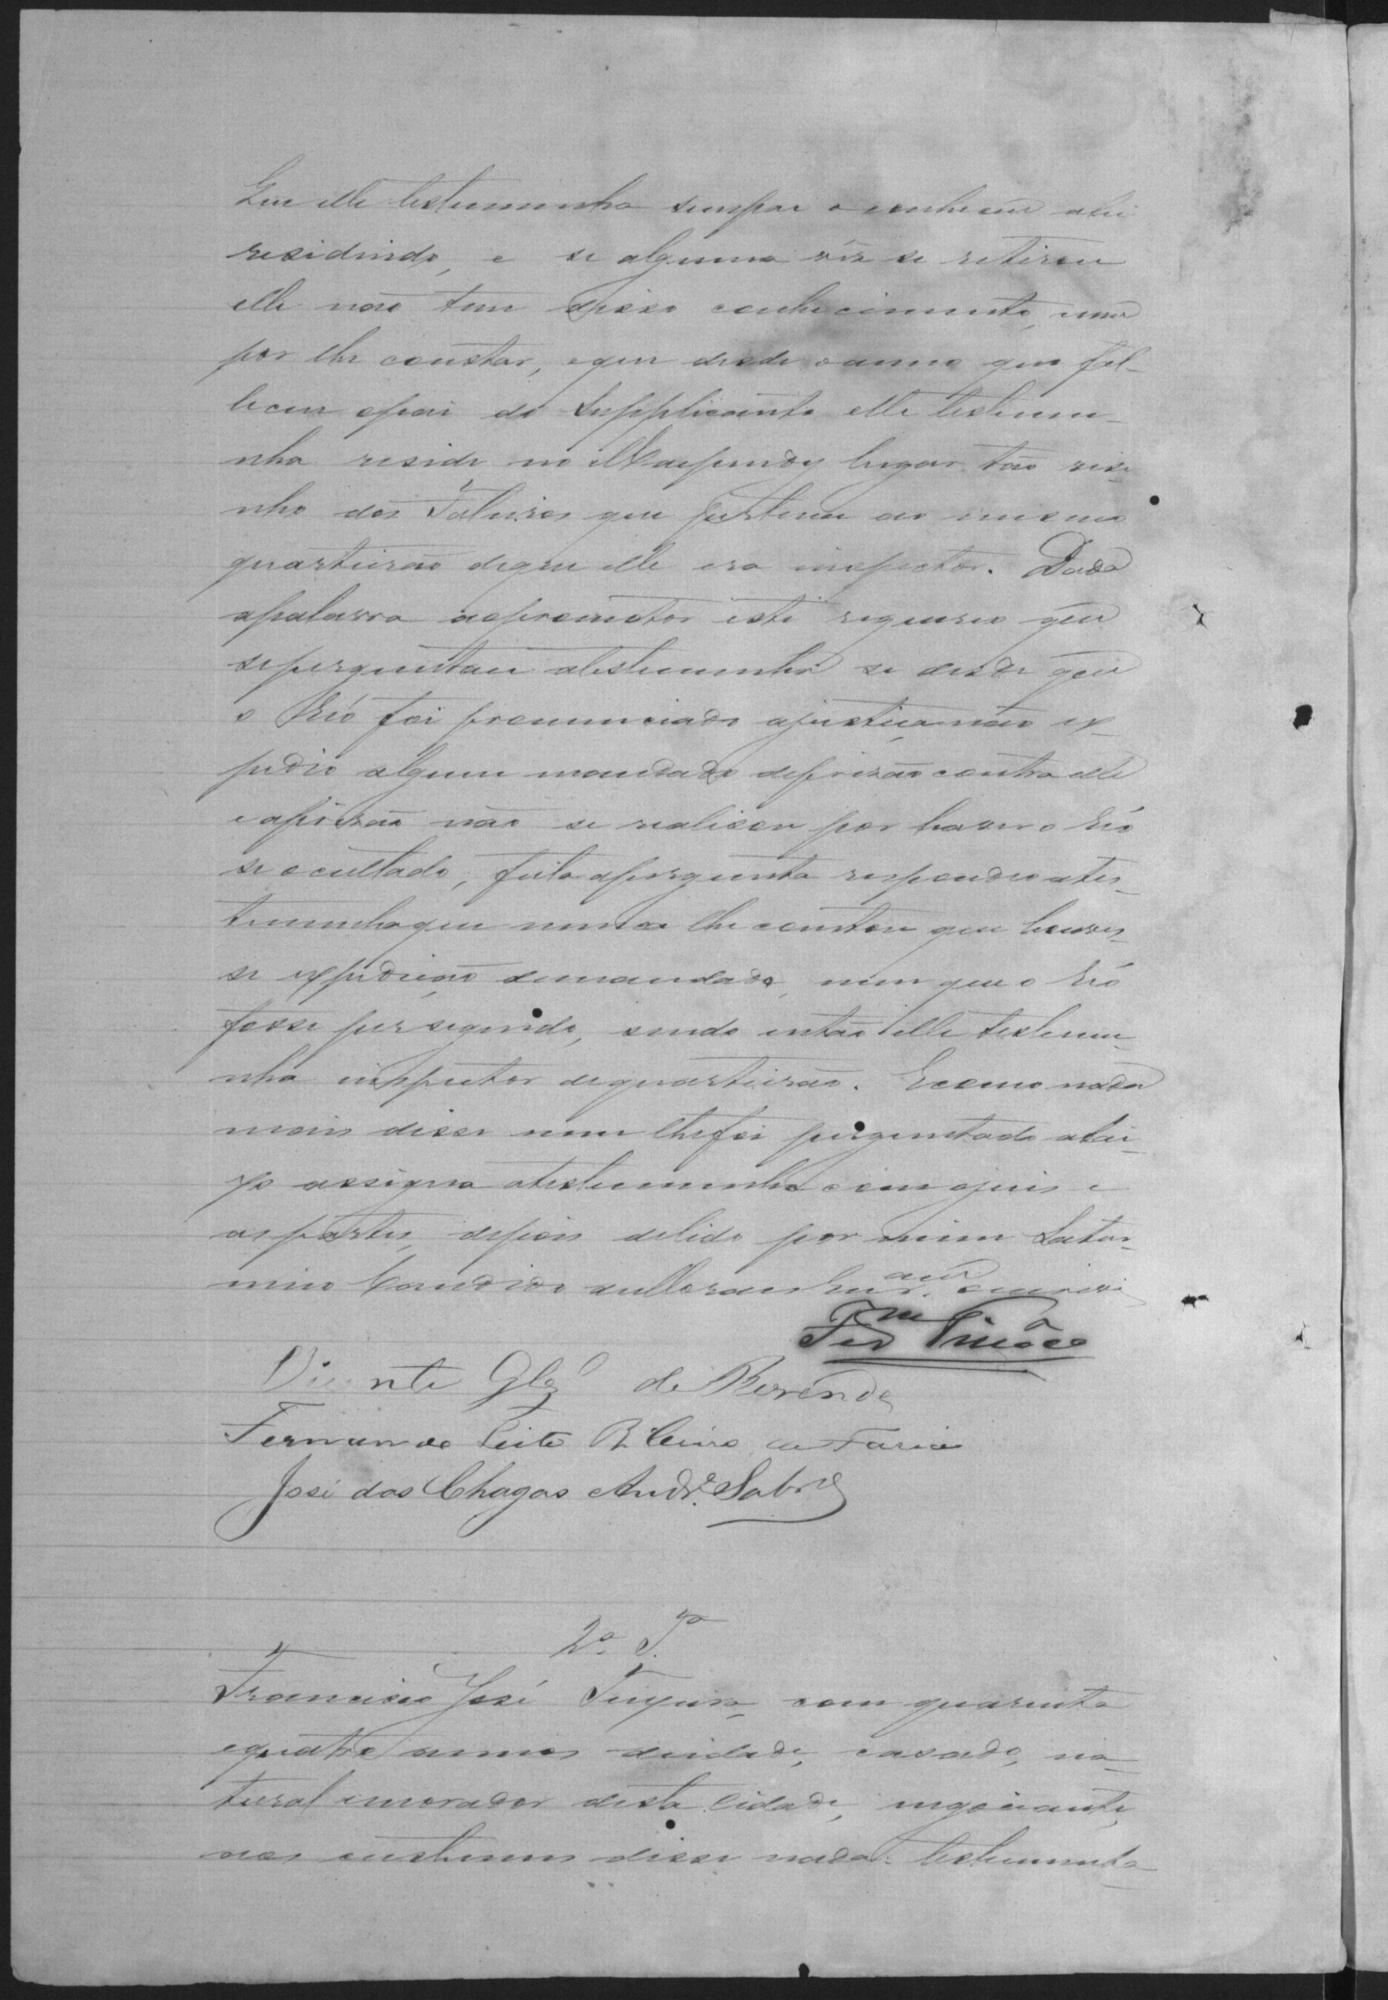 que elle testemunha sempre o conheceu ali
residindo, e se alguma vez se retirou
elle não tem disso conhecimento, nem
por lhe constar, e que desde o anno que fal-
leceu opai do Supplicante elle testemu-
nha reside no lugar tão visi-
nho dos que pertence ao mesmo
quarteirão deque elle era inspector. Dada
apalavra aopromotor este requereu que
seperguntasse atestemunha se desde que
o Réo foi pronunciado ajustiça não ex-
pedio algum mandado deprizão contra elle
e aprizão não se realisou por haver o Réo
se occultado, feita apergunta respondeo ates-
temunha que nunca lhe constou que houves-
se expedição demandado, nem que o Réo
fosse perseguido, sendo então elle testemu-
nha inspector dequarteirão. E como nada
mais disse nem lhe foi perguntado abai-
xo assigna atestemunha com ojuis e
as partes, depois delido por mim Satur-
nino Candido
Vicente Glz de Rezende
Fernando Leite Ribeiro de Faria
José dos Chagas Andre. Sobro
2ª. Tª.
Francisco José com quarenta
equatro annos deidade, casado, na-
tural emorador desta Cidade, negociante,
aos custumes disse nada. testemunha